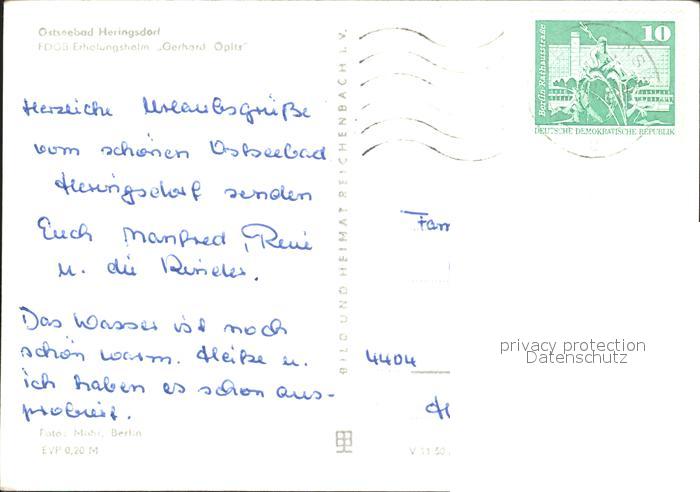 Ostseebad Heringsdorf
FDGB-Erholungsheim „Gerhard Opitz"
Herzliche Urlaubsgrüße
vom schönen Ostseebad
Heringsdorf senden
Euch Manfred, René
u. die Kinder.
Das Wasser ist noch
schön warm. Heike u.
ich haben es schon aus-
probiert.
Foto: Mohr, Berlin
EVP 0,20 M
BILD UND HEIMAT REICHENBACH i. V.
V 11 50
10
Berlin-Rathausstraße
DEUTSCHE DEMOKRATISCHE REPUBLIK
Fam
4404
privacy protection
Datenschutz